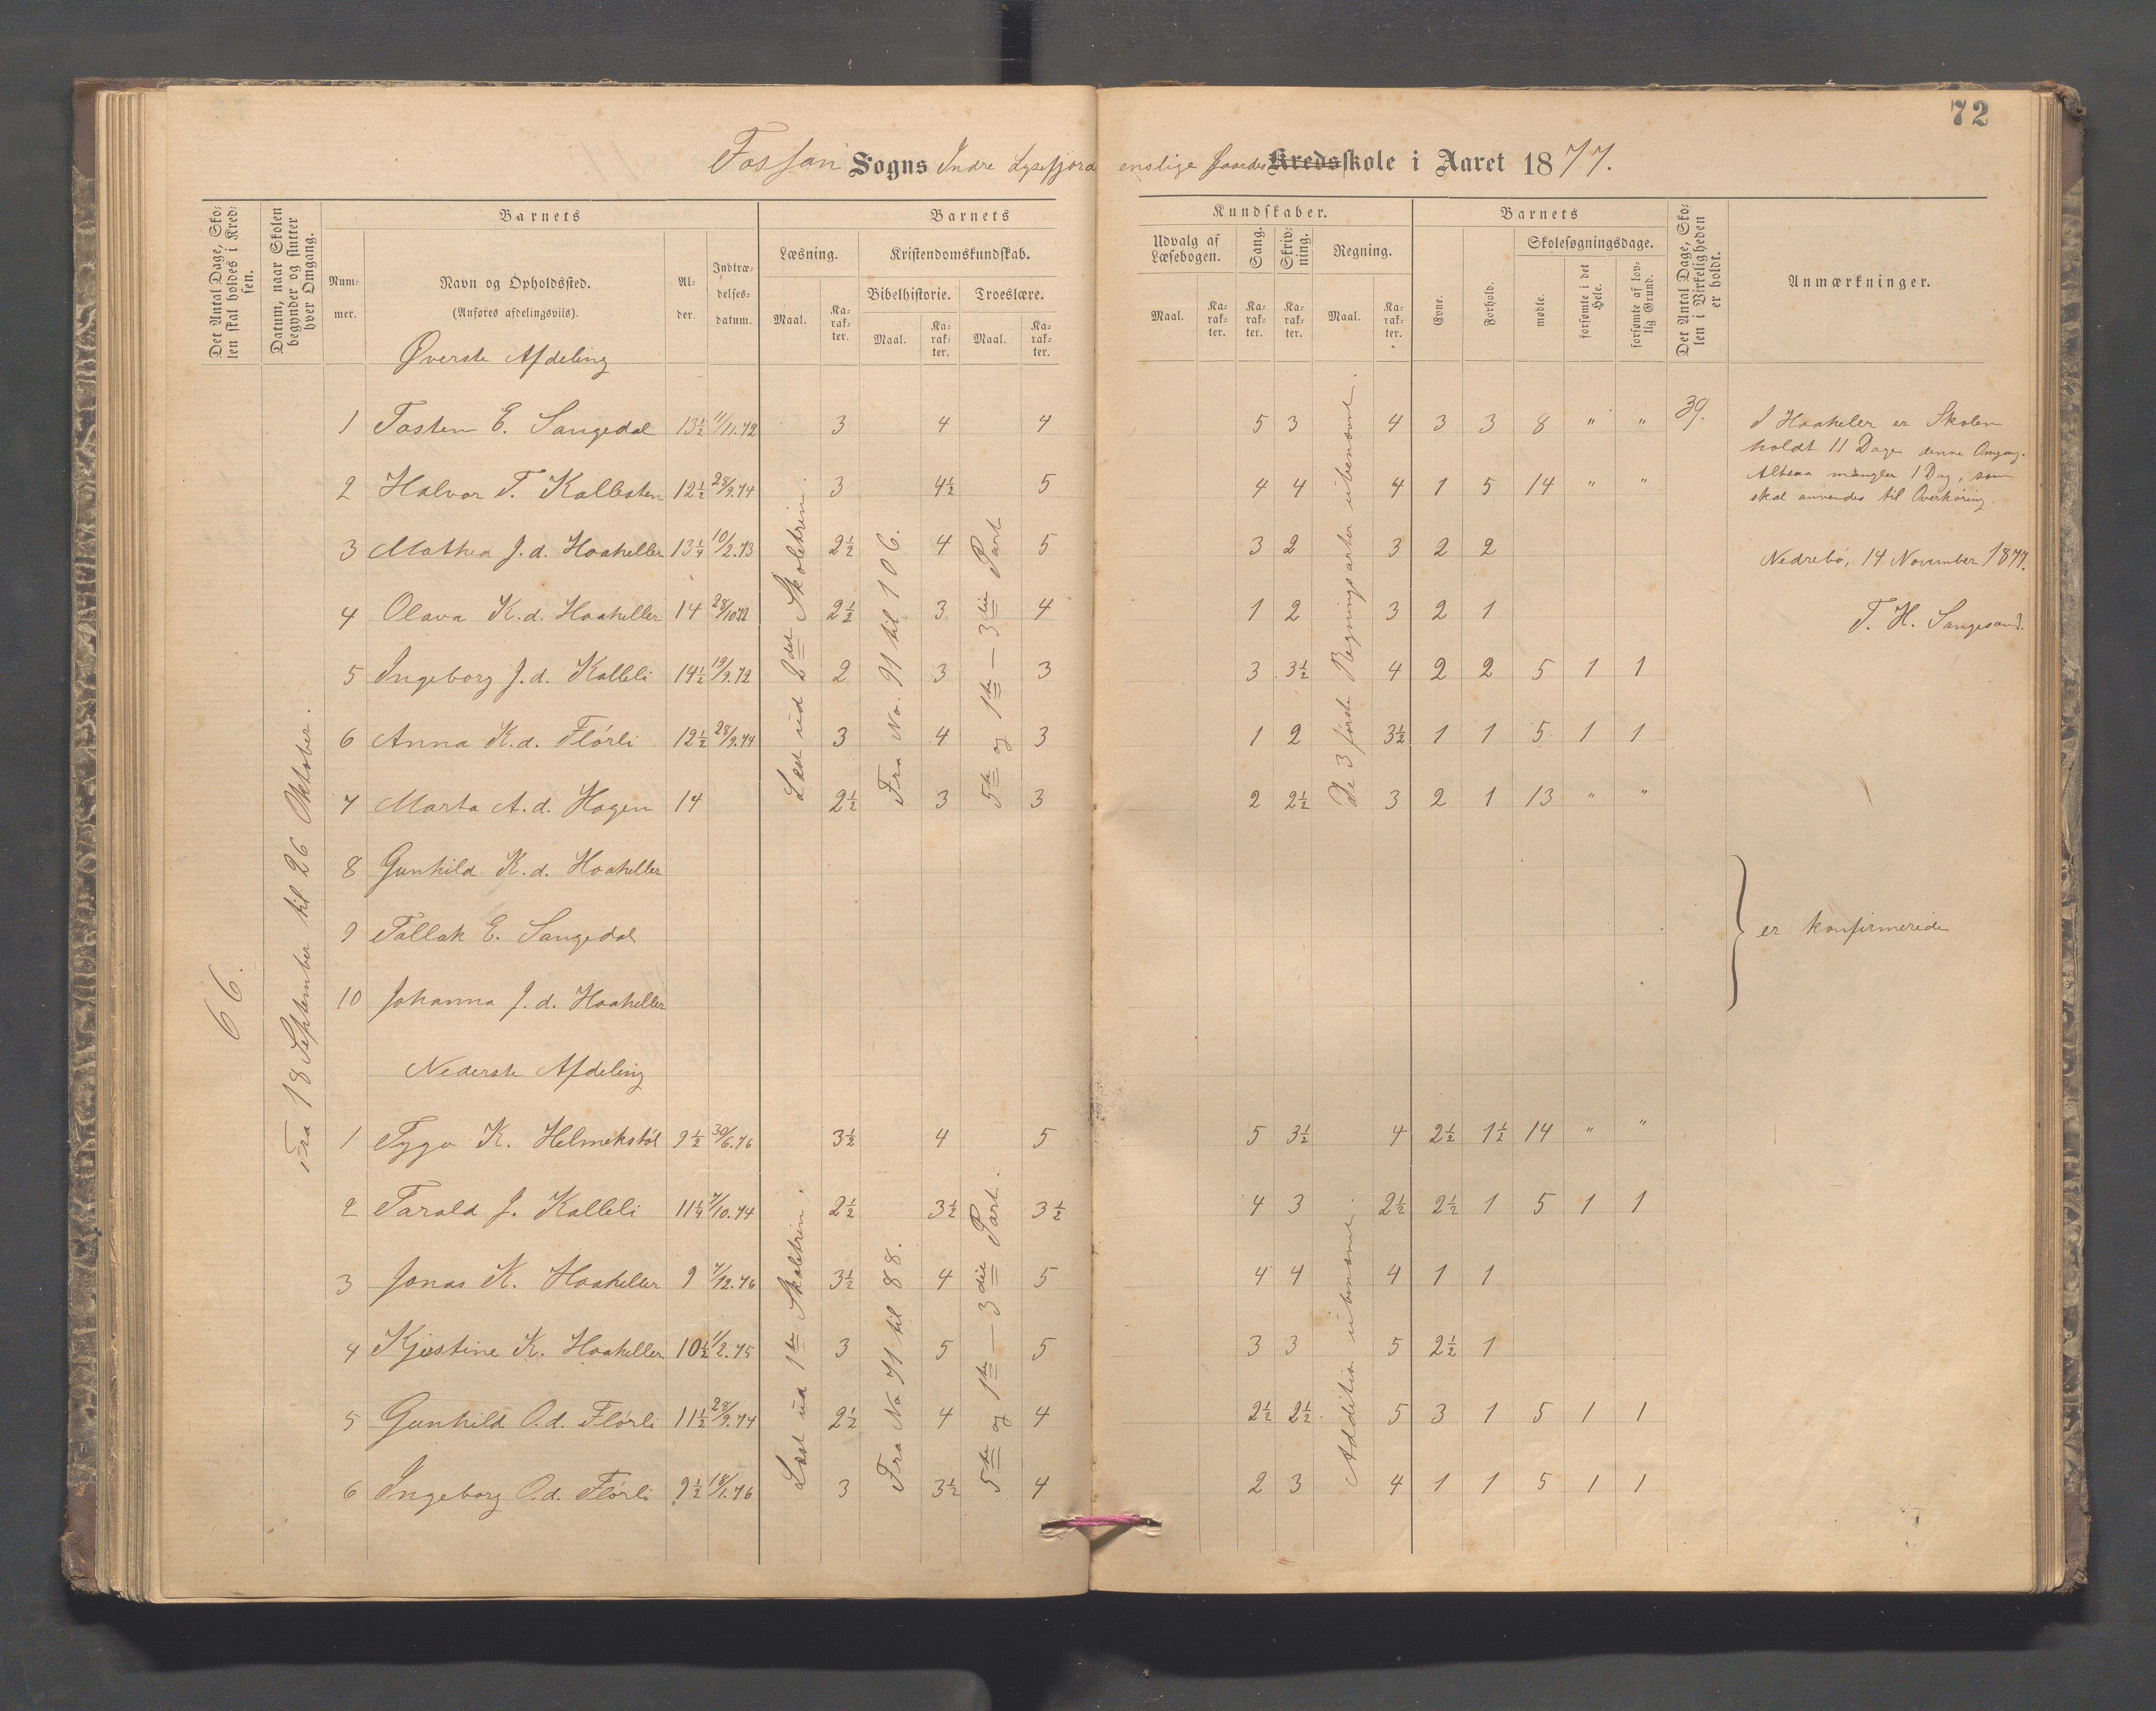 72
Fossan Sogns Indre Lysefjord enslige Gaardes Kredsskole i Aaret 1877.
Det Antal Dage, Skolen skal holdes i Kredsen.
Datum, naar Skolen begynder og slutter hver Omgang.
Barnets
Nummer.
Navn og Opholdssted.
(Anføres afdelingsviis).
Alder.
Indtrædelses-datum.
Barnets Kundskaber.
Læsning.
Maal.
Karakter.
Kristendomskundskab.
Bibelhistorie.
Maal.
Karakter.
Troeslære.
Maal.
Karakter.
Udvalg af Læsebogen.
Maal.
Karakter.
Sang.
Karakter.
Skrivning.
Karakter.
Regning.
Maal.
Karakter.
Barnets
Evne.
Forhold.
Skolesøgningsdage.
mødte.
forsømte i det Hele.
forsømte af lovlig Grund.
Det Antal Dage, Skolen i Virkeligheden er holdt.
Anmærkninger.
66.
Fra 18 September til 26 Oktober.
Øverste Afdeling
Læst ud 2det Skoletrin.
Fra No. 91 til 106.
5te og 1ste — 3die Part
De 3 første Regningsarter ubenævnt.
1 Tosten E. Sangedal 13½ 11/11.72 3 4 4 5 3 4 3 3 8 " " 39.
2 Halvor T. Kallesten 12½ 28/9.74 3 4½ 5 4 4 4 1 5 14 " "
3 Mathea J.d. Haaheller 13¼ 10/2.73 2½ 4 5 3 2 3 2 2
4 Olava K.d. Haaheller 14 28/10 72 2½ 3 4 1 2 3 2 1
5 Ingeborg J.d. Kalleli 14½ 19/9.72 2 3 3 3 3½ 4 2 2 5 1 1
6 Anna K.d. Flörli 12½ 28/9.74 3 4 3 1 2 3½ 1 1 5 1 1
7 Marta A.d. Hagen 14 2½ 3 3 2 2½ 3 2 1 13 " "
8 Gunhild K.d. Haaheller
9 Tallak E. Sangedal
10 Johanna J.d. Haaheller
I Haaheler er Skolen
holdt 11 Dage denne Omgang.
Altsaa mangler 1 Dag, som
skal anvendes til Overhøring.
Nedrebö, 14 November 1877.
T. H. Sangesand.
er konfirmerede
Nederste Afdeling
Læst ud 1ste Skoletrin.
Fra No 71 til 88.
5te og 1ste — 3die Part.
Addition ubenævnt.
1 Tygo K. Helmikstöl 9½ 30/6.76 3½ 4 5 5 3½ 4 2½ 1½ 14 " "
2 Tarald J. Kalleli 11¼ 7/10.74 2½ 3½ 3½ 4 3 2½ 2½ 1 5 1 1
3 Jonas K. Haaheller 9 7/12.76 3½ 4 5 4 4 4 1 1
4 Kjestine K. Haaheller 10½ 11/2.75 3 5 5 3 3 5 2½ 1
5 Gunhild O.d. Flörli 11½ 28/9.74 2½ 4 4 2½ 2½ 5 3 1 5 1 1
6 Ingeborg O.d. Flörli 9½ 18/1.76 3 3½ 4 2 3 4 1 1 5 1 1